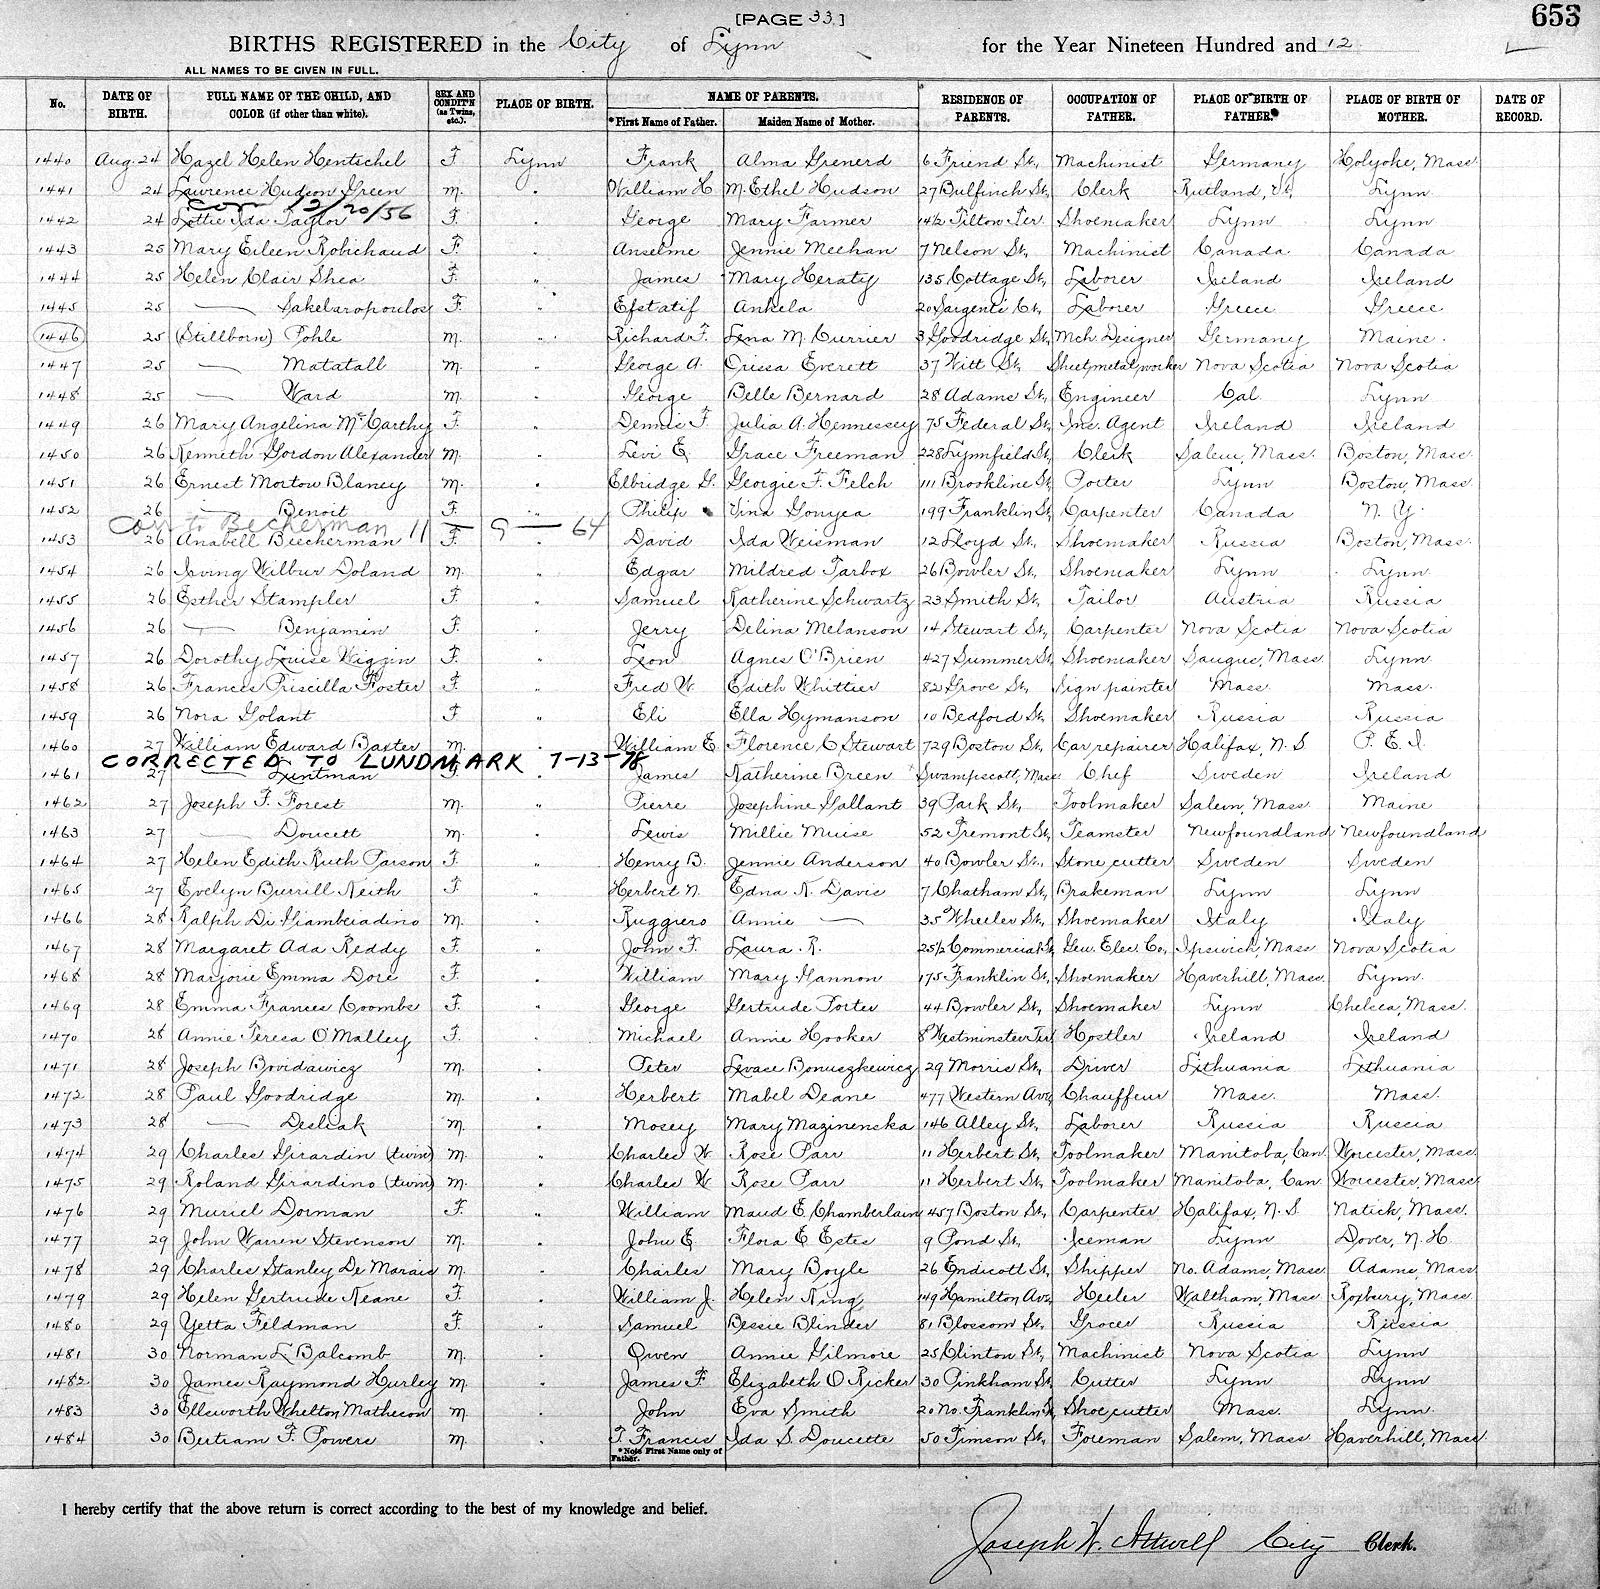 [PAGE 33.]
653
BIRTHS REGISTERED in the City of Lynn for the Year Nineteen Hundred and 12
ALL NAMES TO BE GIVEN IN FULL.
No. DATE OF BIRTH. FULL NAME OF THE CHILD, AND COLOR (if other than white). SEX AND CONDIT'N (as Twins, etc.). PLACE OF BIRTH. NAME OF PARENTS. *First Name of Father. Maiden Name of Mother. RESIDENCE OF PARENTS. OCCUPATION OF FATHER. PLACE OF BIRTH OF FATHER. PLACE OF BIRTH OF MOTHER. DATE OF RECORD.
1440 Aug. 24 Hazel Helen Hentschel F. Lynn Frank Alma Grenerd 6 Friend St., Machinist Germany Holyoke, Mass
1441 24 Lawrence Hudson Green M. " William H M. Ethel Hudson 27 Bulfinch St., Clerk Rutland, Vt. Lynn
Corr 12/20/56
1442 24 Lottie Ida Taylor F. " George Mary Farmer 14 1/2 Tilton Ter. Shoemaker Lynn Lynn
1443 25 Mary Eileen Robichaud F. " Anselme Jennie Meehan 7 Nelson St., Machinist Canada Canada
1444 25 Helen Clair Shea F. " James Mary Heraty 135 Cottage St., Laborer Ireland Ireland
1445 25 — Sakelaropoulos F. " Efstatif Ankela 20 Sargents Ct., Laborer Greece Greece
1446 25 (Stillborn) Pohle M. " Richard F. Lena M. Currier 3 Goodridge St., Mch. Designer Germany Maine.
1447 25 — Matatall M. " George A. Orissa Everett 37 Witt St., Sheet metal worker Nova Scotia Nova Scotia
1448 25 — Ward M. " George Belle Bernard 28 Adams St., Engineer Cal. Lynn
1449 26 Mary Angelina McCarthy F. " Dennis F. Julia A. Hennessey 75 Federal St., Ins. Agent Ireland Ireland
1450 26 Kenneth Gordon Alexander M. " Levi E. Grace Freeman 228 Lynnfield St., Clerk Salem, Mass. Boston, Mass.
1451 26 Ernest Morton Blaney M. " Elbridge G. Georgie F. Felch 111 Brookline St., Porter Lynn Boston, Mass.
1452 26 — Benoit F. " Philip Vina Gonyea 199 Franklin St., Carpenter Canada N. Y.
Corr to Beckerman 11 — 9 — 64
1453 26 Anabell Beeckerman F. " David Ida Weisman 12 Lloyd St., Shoemaker Russia Boston, Mass.
1454 26 Irving Wilbur Doland M. " Edgar Mildred Tarbox 26 Bowler St., Shoemaker Lynn Lynn
1455 26 Esther Stampler F. " Samuel Katherine Schwartz 23 Smith St., Tailor Austria Russia
1456 26 — Benjamin F. " Jerry Delina Melanson 14 Stewart St., Carpenter Nova Scotia Nova Scotia
1457 26 Dorothy Louise Wiggin F. " Leon Agnes O'Brien 427 Summer St., Shoemaker Saugus, Mass. Lynn
1458 26 Frances Priscilla Foster F. " Fred W. Edith Whittier 82 Grove St., Sign painter Mass. Mass.
1459 26 Nora Golant F. " Eli Ella Hymanson 10 Bedford St., Shoemaker Russia Russia
1460 27 William Edward Baxter M. " William E. Florence C Stewart 729 Boston St., Car repairer Halifax, N. S. P. E. I.
CORRECTED TO LUNDMARK 7-13-78
1461 27 — Luntman F. " James Katherine Breen Swampscott, Mass Chef Sweden Ireland
1462 27 Joseph F. Forest M. " Pierre Josephine Gallant 39 Park St., Toolmaker Salem, Mass. Maine
1463 27 — Doucett M. " Lewis Millie Muise 52 Tremont St., Teamster Newfoundland Newfoundland
1464 27 Helen Edith Ruth Parson F. " Henry B. Jennie Anderson 40 Bowler St., Stone cutter Sweden Sweden
1465 27 Evelyn Burrill Keith F. " Herbert N. Edna K. Davis 7 Chatham St., Brakeman Lynn Lynn
1466 28 Ralph Di Giambeiadino M. " Ruggiero Annie — 35 Wheeler St., Shoemaker Italy Italy
1467 28 Margaret Ada Reddy F. " John F. Laura R. 25 1/2 Commercial St., Gen. Elec. Co., Ipswich, Mass Nova Scotia
1468 28 Marjorie Emma Dore F. " William Mary Hannon 175 Franklin St., Shoemaker Haverhill, Mass. Lynn
1469 28 Emma Frances Coombs F. " George Gertrude Porter 44 Bowler St., Shoemaker Lynn Chelsea, Mass.
1470 28 Annie Teresa O'Malley F. " Michael Annie Hooker 8 Westminster Ter. Hostler Ireland Ireland
1471 28 Joseph Bovidawicz M. " Peter Levase Bonuszkewicz 29 Morris St., Driver Lithuania Lithuania
1472 28 Paul Goodridge M. " Herbert Mabel Deane 477 Western Ave., Chauffeur Mass. Mass.
1473 28 — Desliak M. " Mosey Mary Mazinenska 146 Alley St., Laborer Russia Russia
1474 29 Charles Girardin (twin) M. " Charles W. Rose Parr 11 Herbert St., Toolmaker Manitoba, Can. Worcester, Mass.
1475 29 Roland Girardino (twin) M. " Charles W Rose Parr 11 Herbert St., Toolmaker Manitoba, Can. Worcester, Mass.
1476 29 Muriel Dorman F. " William Maud E. Chamberlain 457 Boston St., Carpenter Halifax, N. S. Natick, Mass.
1477 29 John Warren Stevenson M. " John E. Flora E Estes 9 Pond St., Iceman Lynn Dover, N. H.
1478 29 Charles Stanley De Marais M. " Charles Mary Boyle 26 Endicott St., Shipper No. Adams, Mass. Adams, Mass.
1479 29 Helen Gertrude Keane F. " William J. Helen King 149 Hamilton Ave., Heeler Waltham, Mass Roxbury, Mass.
1480 29 Yetta Feldman F. " Samuel Bessie Blinder 81 Blossom St., Grocer Russia Russia
1481 30 Norman L Balcomb M. " Owen Annie Gilmore 25 Clinton St., Machinist Nova Scotia Lynn
1482 30 James Raymond Hurley M. " James F. Elizabeth O Ricker 30 Pinkham St., Cutter Lynn Lynn
1483 30 Ellsworth Whelton Matheson M. " John Eva Smith 20 No. Franklin St., Shoe cutter Mass. Lynn.
1484 30 Bertram F. Powers M. " T. Francis Ida S. Doucette 50 Timson St., Foreman Salem, Mass. Haverhill, Mass.
*Note First Name only of Father.
I hereby certify that the above return is correct according to the best of my knowledge and belief.
Joseph W. Attwill City Clerk.